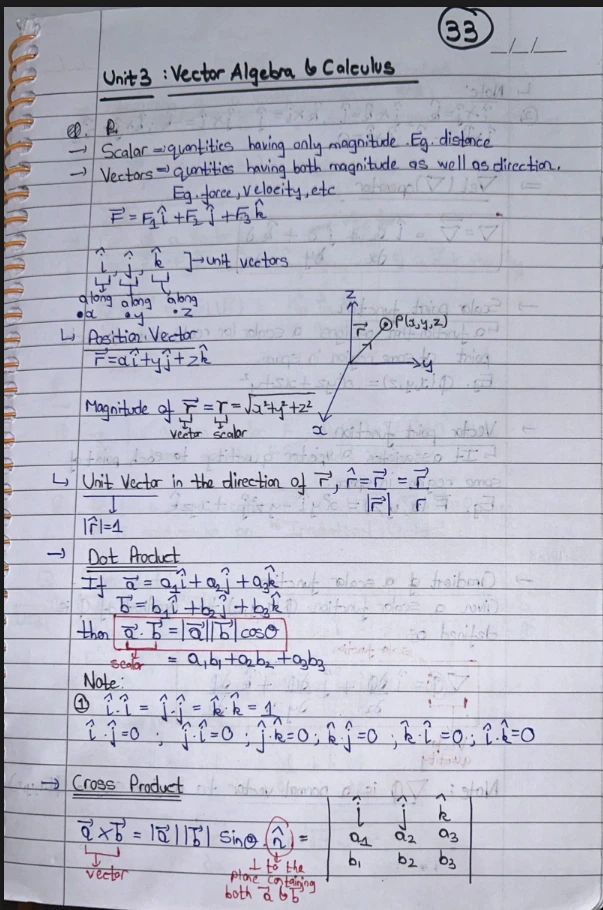 33
_/_/_
Unit 3 : Vector Algebra & Calculus
→ Scalar ⇒ quantities having only magnitude. Eg. distance
→ Vectors ⇒ quantities having both magnitude as well as direction.
Eg. force, velocity, etc
F⃗ = F₁î + F₂ĵ + F₃k̂
î, ĵ, k̂ ] → unit vectors
along along along
• x • y • z
↳ Position Vector
r⃗ = xî + yĵ + zk̂
z
r⃗
P(x,y,z)
y
x
Magnitude of r⃗ = r = √x²+y²+z²
vector scalar
↳ Unit Vector in the direction of r⃗, r̂ = r⃗/|r⃗| = r⃗/r
|r̂| = 1
→ Dot Product
If a⃗ = a₁î + a₂ĵ + a₃k̂
b⃗ = b₁î + b₂ĵ + b₃k̂
then a⃗ · b⃗ = |a⃗||b⃗| cosθ
scalar
= a₁b₁ + a₂b₂ + a₃b₃
Note:
① î·î = ĵ·ĵ = k̂·k̂ = 1
î·ĵ=0 ; ĵ·î=0 ; ĵ·k̂=0 ; k̂·ĵ=0 ; k̂·î=0 ; î·k̂=0
→ Cross Product
a⃗ × b⃗ = |a⃗||b⃗| sinθ n̂ = | î ĵ k̂ |
| a₁ a₂ a₃ |
| b₁ b₂ b₃ |
vector
⊥ to the
plane containing
both a⃗ & b⃗